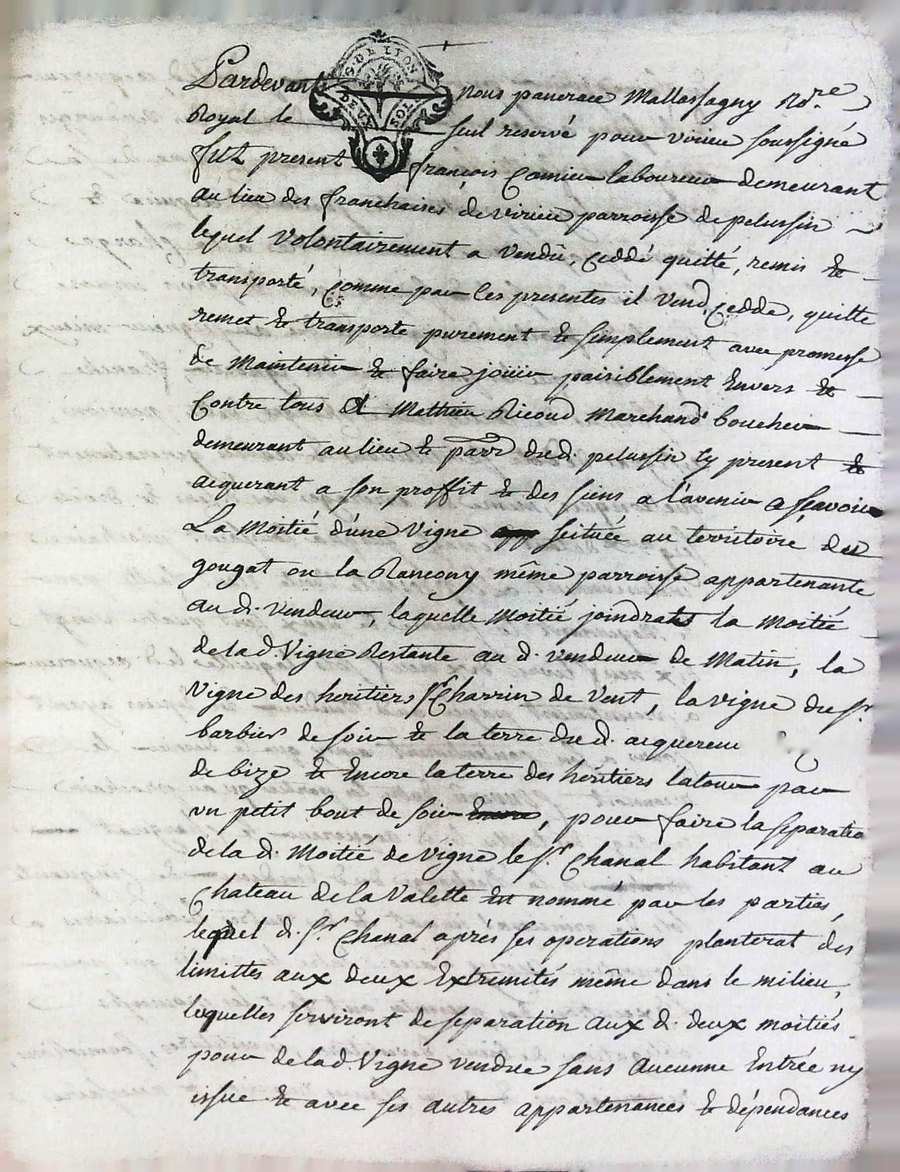 G. DE LYON
DEUX SOLS
Pardevant nous pancrace Mallassagny No.re
Royal le seul reservé pour virieu soussigné
fut present françois Comieu laboureur demeurant
au lieu des franchaises de virieu parroisse de pelussin
lequel volontairement a vendû, ceddé quitté, remis &
transporté, comme par ces presentes il vend, cedde, quitte
remet & transporte purement & simplement avec promesse
de maintenir & faire jouir paisiblement Envers &
Contre tous A Mathieu Ricoud Marchand boucher
demeurant au lieu & parr dud. pelussin cy present &
acquerant a son proffit & des siens a l'avenir a scavoir
La moitié d'une vigne située au territoire du
gougat ou la Rancony même parroisse appartenante
au d. vendeur, laquelle moitié joindrat la moitié
de lad vigne Restante au d. vendeur de Matin, la
vigne des heritiers Sr Charrin de vent, la vigne du Sr.
barbier de soir & la terre du d. acquereur
de bize & Encore la terre des héritiers latour par
un petit bout de soir, pour faire la separatio
de la d. Moitié de vigne le Sr Chanal habitant au
Chateau de la Valette Est nommé par les parties,
lequel d. Sr. Chanal après ses operations planterat des
limittes aux deux Extremités même dans le milieu,
lesquelles serviront de separation aux d. deux moitiés
pour de lad vigne vendue sans aucunne Entrée ny
issue & avec ses autres appartenances & dépendances